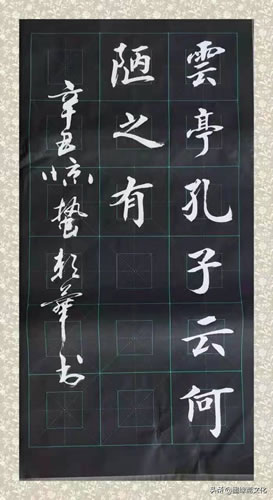 雲亭孔子云何
陋之有
辛丑惊蛰朝华书
头条@璟缘斋文化